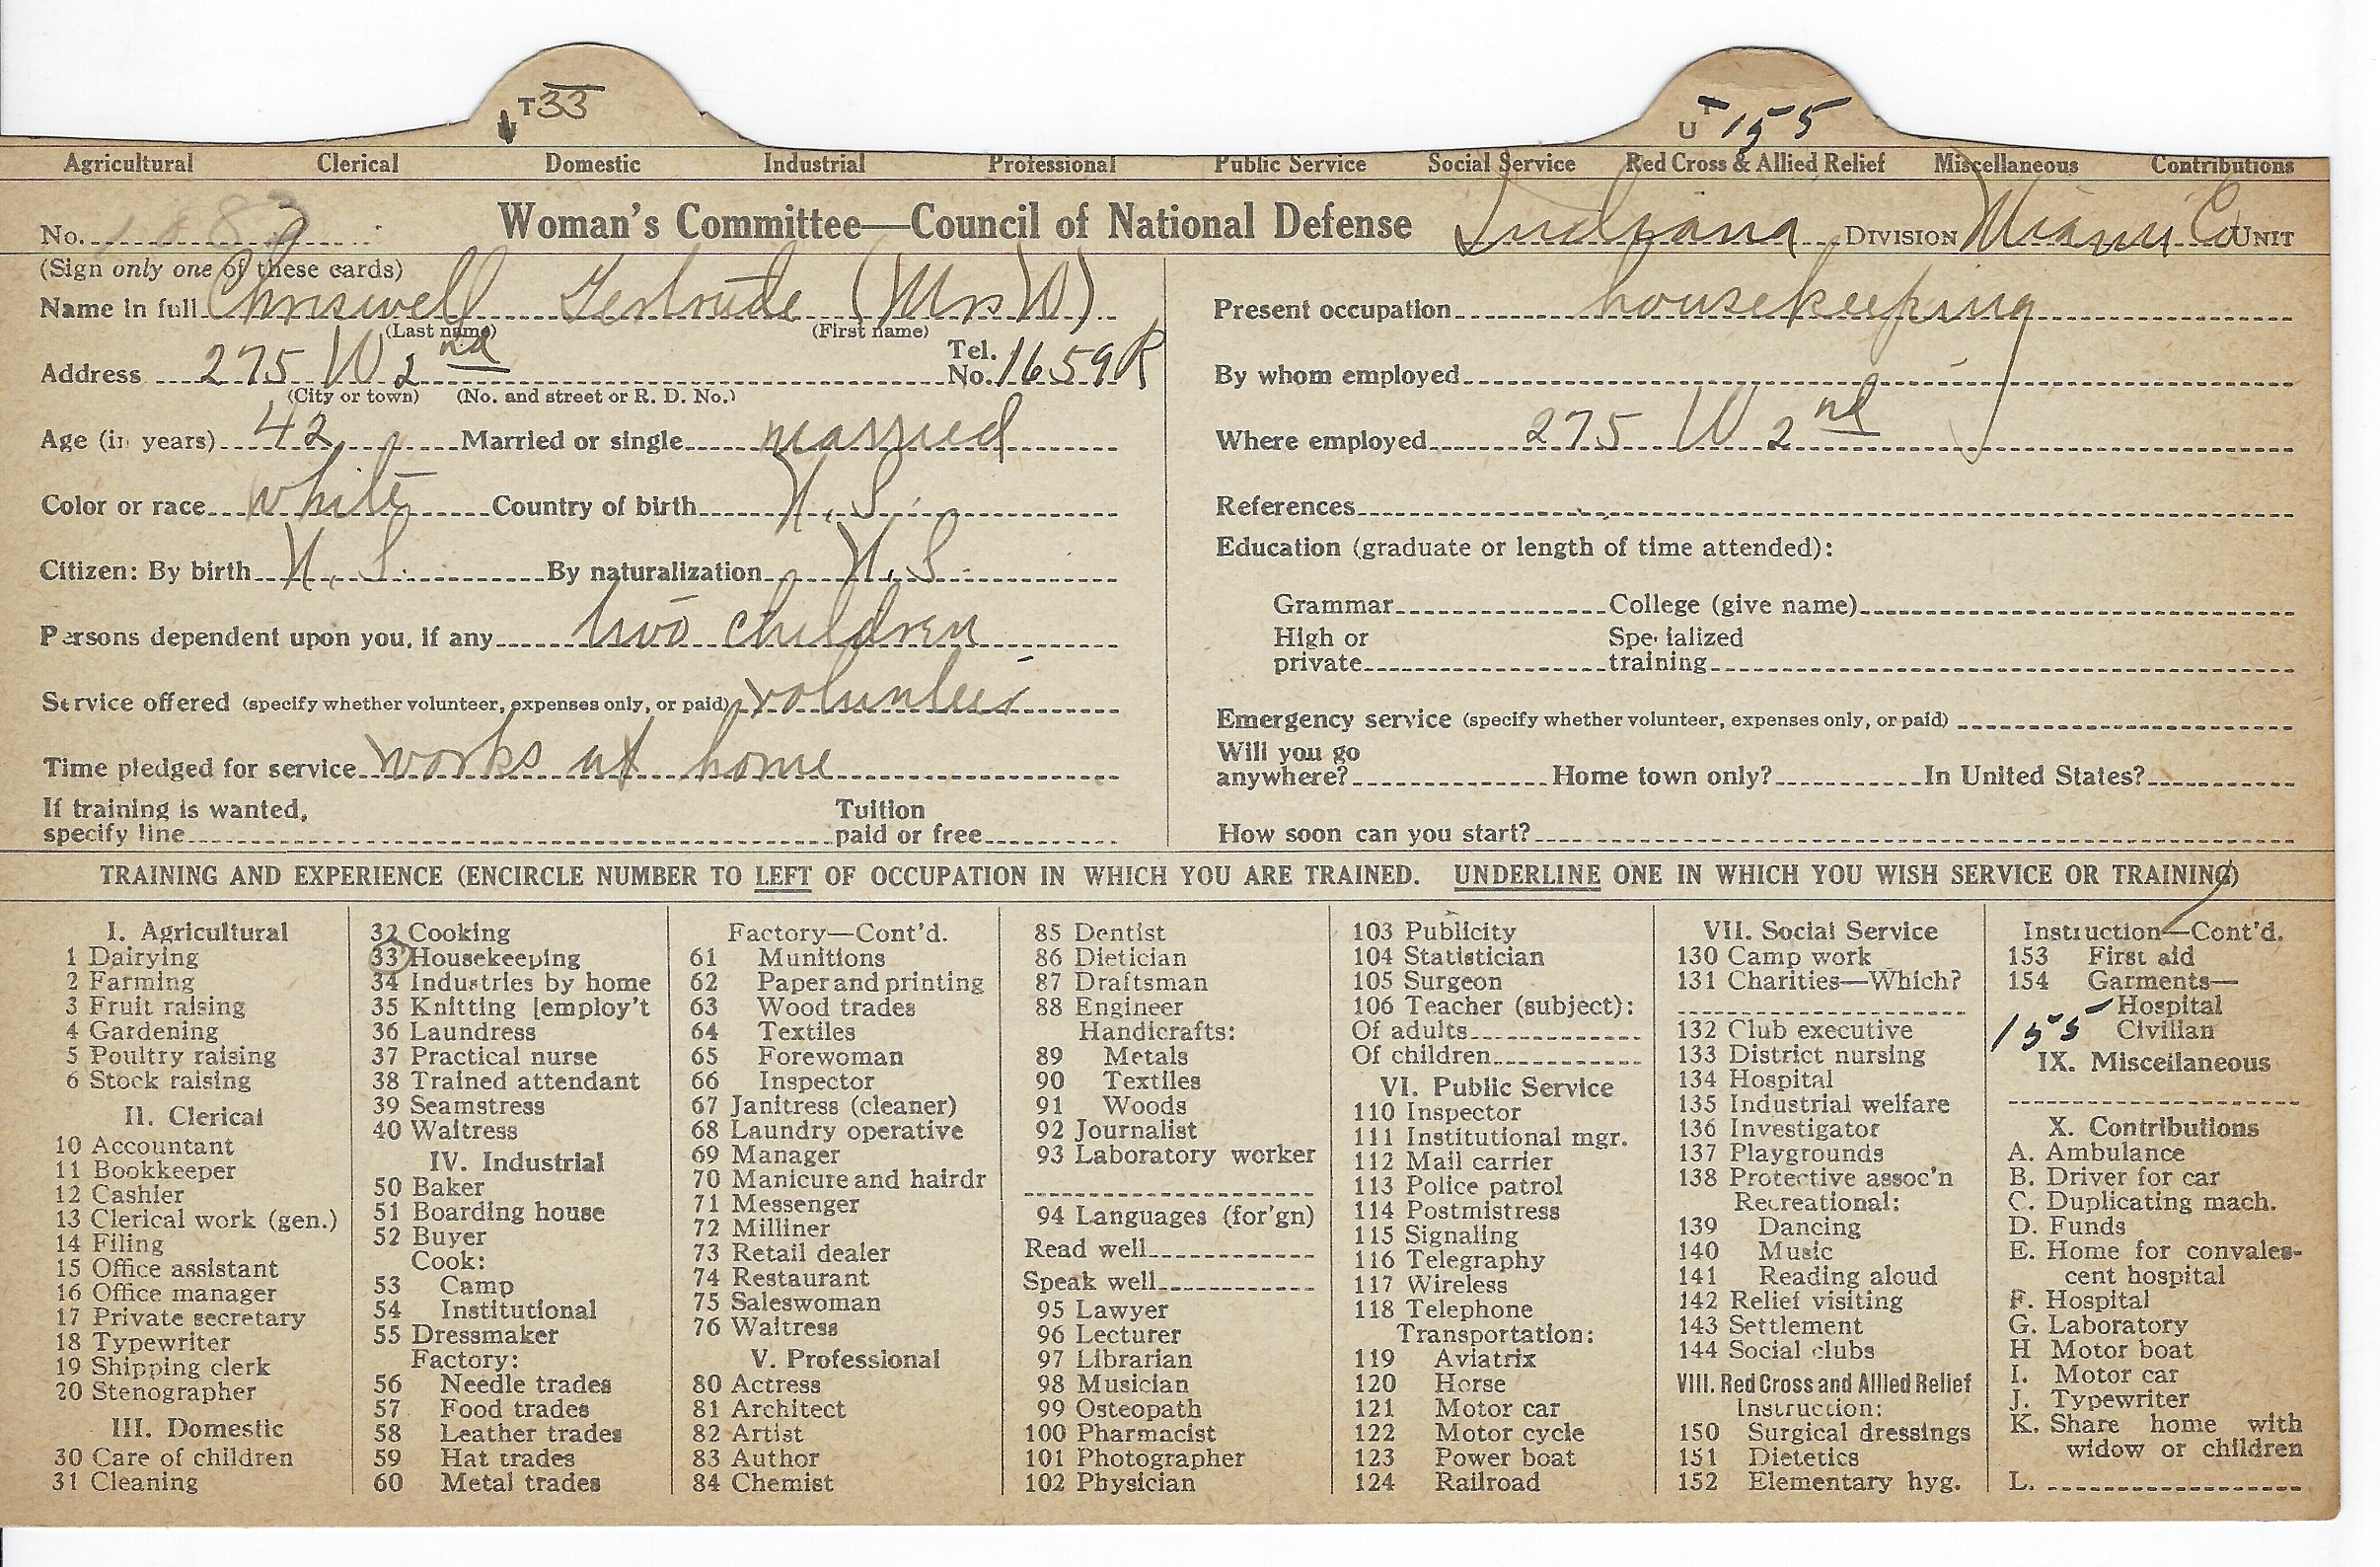 T 33
T
U 155
Agricultural Clerical Domestic Industrial Professional Public Service Social Service Red Cross & Allied Relief Miscellaneous Contributions
No. 1883 Woman's Committee—Council of National Defense Indiana DIVISION Miami Co UNIT
(Sign only one of these cards)
Name in full Chriswell Gertrude (Mrs W)
(Last name) (First name)
Address 275 W 2nd Tel. No. 1659R
(City or town) (No. and street or R. D. No.)
Age (in years) 42 Married or single married
Color or race white Country of birth U.S.
Citizen: By birth U.S. By naturalization U.S.
Persons dependent upon you, if any two children
Service offered (specify whether volunteer, expenses only, or paid) volunteer
Time pledged for service works at home
If training is wanted, specify line Tuition paid or free
Present occupation housekeeping
By whom employed
Where employed 275 W 2nd
References
Education (graduate or length of time attended):
Grammar College (give name)
High or private Specialized training
Emergency service (specify whether volunteer, expenses only, or paid)
Will you go anywhere? Home town only? In United States?
How soon can you start?
TRAINING AND EXPERIENCE (ENCIRCLE NUMBER TO LEFT OF OCCUPATION IN WHICH YOU ARE TRAINED. UNDERLINE ONE IN WHICH YOU WISH SERVICE OR TRAINING)
I. Agricultural
1 Dairying
2 Farming
3 Fruit raising
4 Gardening
5 Poultry raising
6 Stock raising
II. Clerical
10 Accountant
11 Bookkeeper
12 Cashier
13 Clerical work (gen.)
14 Filing
15 Office assistant
16 Office manager
17 Private secretary
18 Typewriter
19 Shipping clerk
20 Stenographer
III. Domestic
30 Care of children
31 Cleaning
32 Cooking
33 Housekeeping
34 Industries by home
35 Knitting [employ't
36 Laundress
37 Practical nurse
38 Trained attendant
39 Seamstress
40 Waitress
IV. Industrial
50 Baker
51 Boarding house
52 Buyer
Cook:
53 Camp
54 Institutional
55 Dressmaker
Factory:
56 Needle trades
57 Food trades
58 Leather trades
59 Hat trades
60 Metal trades
Factory—Cont'd.
61 Munitions
62 Paper and printing
63 Wood trades
64 Textiles
65 Forewoman
66 Inspector
67 Janitress (cleaner)
68 Laundry operative
69 Manager
70 Manicure and hairdr
71 Messenger
72 Milliner
73 Retail dealer
74 Restaurant
75 Saleswoman
76 Waitress
V. Professional
80 Actress
81 Architect
82 Artist
83 Author
84 Chemist
85 Dentist
86 Dietician
87 Draftsman
88 Engineer
Handicrafts:
89 Metals
90 Textiles
91 Woods
92 Journalist
93 Laboratory worker
94 Languages (for'gn)
Read well
Speak well
95 Lawyer
96 Lecturer
97 Librarian
98 Musician
99 Osteopath
100 Pharmacist
101 Photographer
102 Physician
103 Publicity
104 Statistician
105 Surgeon
106 Teacher (subject):
Of adults
Of children
VI. Public Service
110 Inspector
111 Institutional mgr.
112 Mail carrier
113 Police patrol
114 Postmistress
115 Signaling
116 Telegraphy
117 Wireless
118 Telephone
Transportation:
119 Aviatrix
120 Horse
121 Motor car
122 Motor cycle
123 Power boat
124 Railroad
VII. Social Service
130 Camp work
131 Charities—Which?
132 Club executive
133 District nursing
134 Hospital
135 Industrial welfare
136 Investigator
137 Playgrounds
138 Protective assoc'n
Recreational:
139 Dancing
140 Music
141 Reading aloud
142 Relief visiting
143 Settlement
144 Social clubs
VIII. Red Cross and Allied Relief
Instruction:
150 Surgical dressings
151 Dietetics
152 Elementary hyg.
Instruction—Cont'd.
153 First aid
154 Garments—
Hospital
155 Civilian
IX. Miscellaneous
X. Contributions
A. Ambulance
B. Driver for car
C. Duplicating mach.
D. Funds
E. Home for convales-
cent hospital
F. Hospital
G. Laboratory
H Motor boat
I. Motor car
J. Typewriter
K. Share home with
widow or children
L.